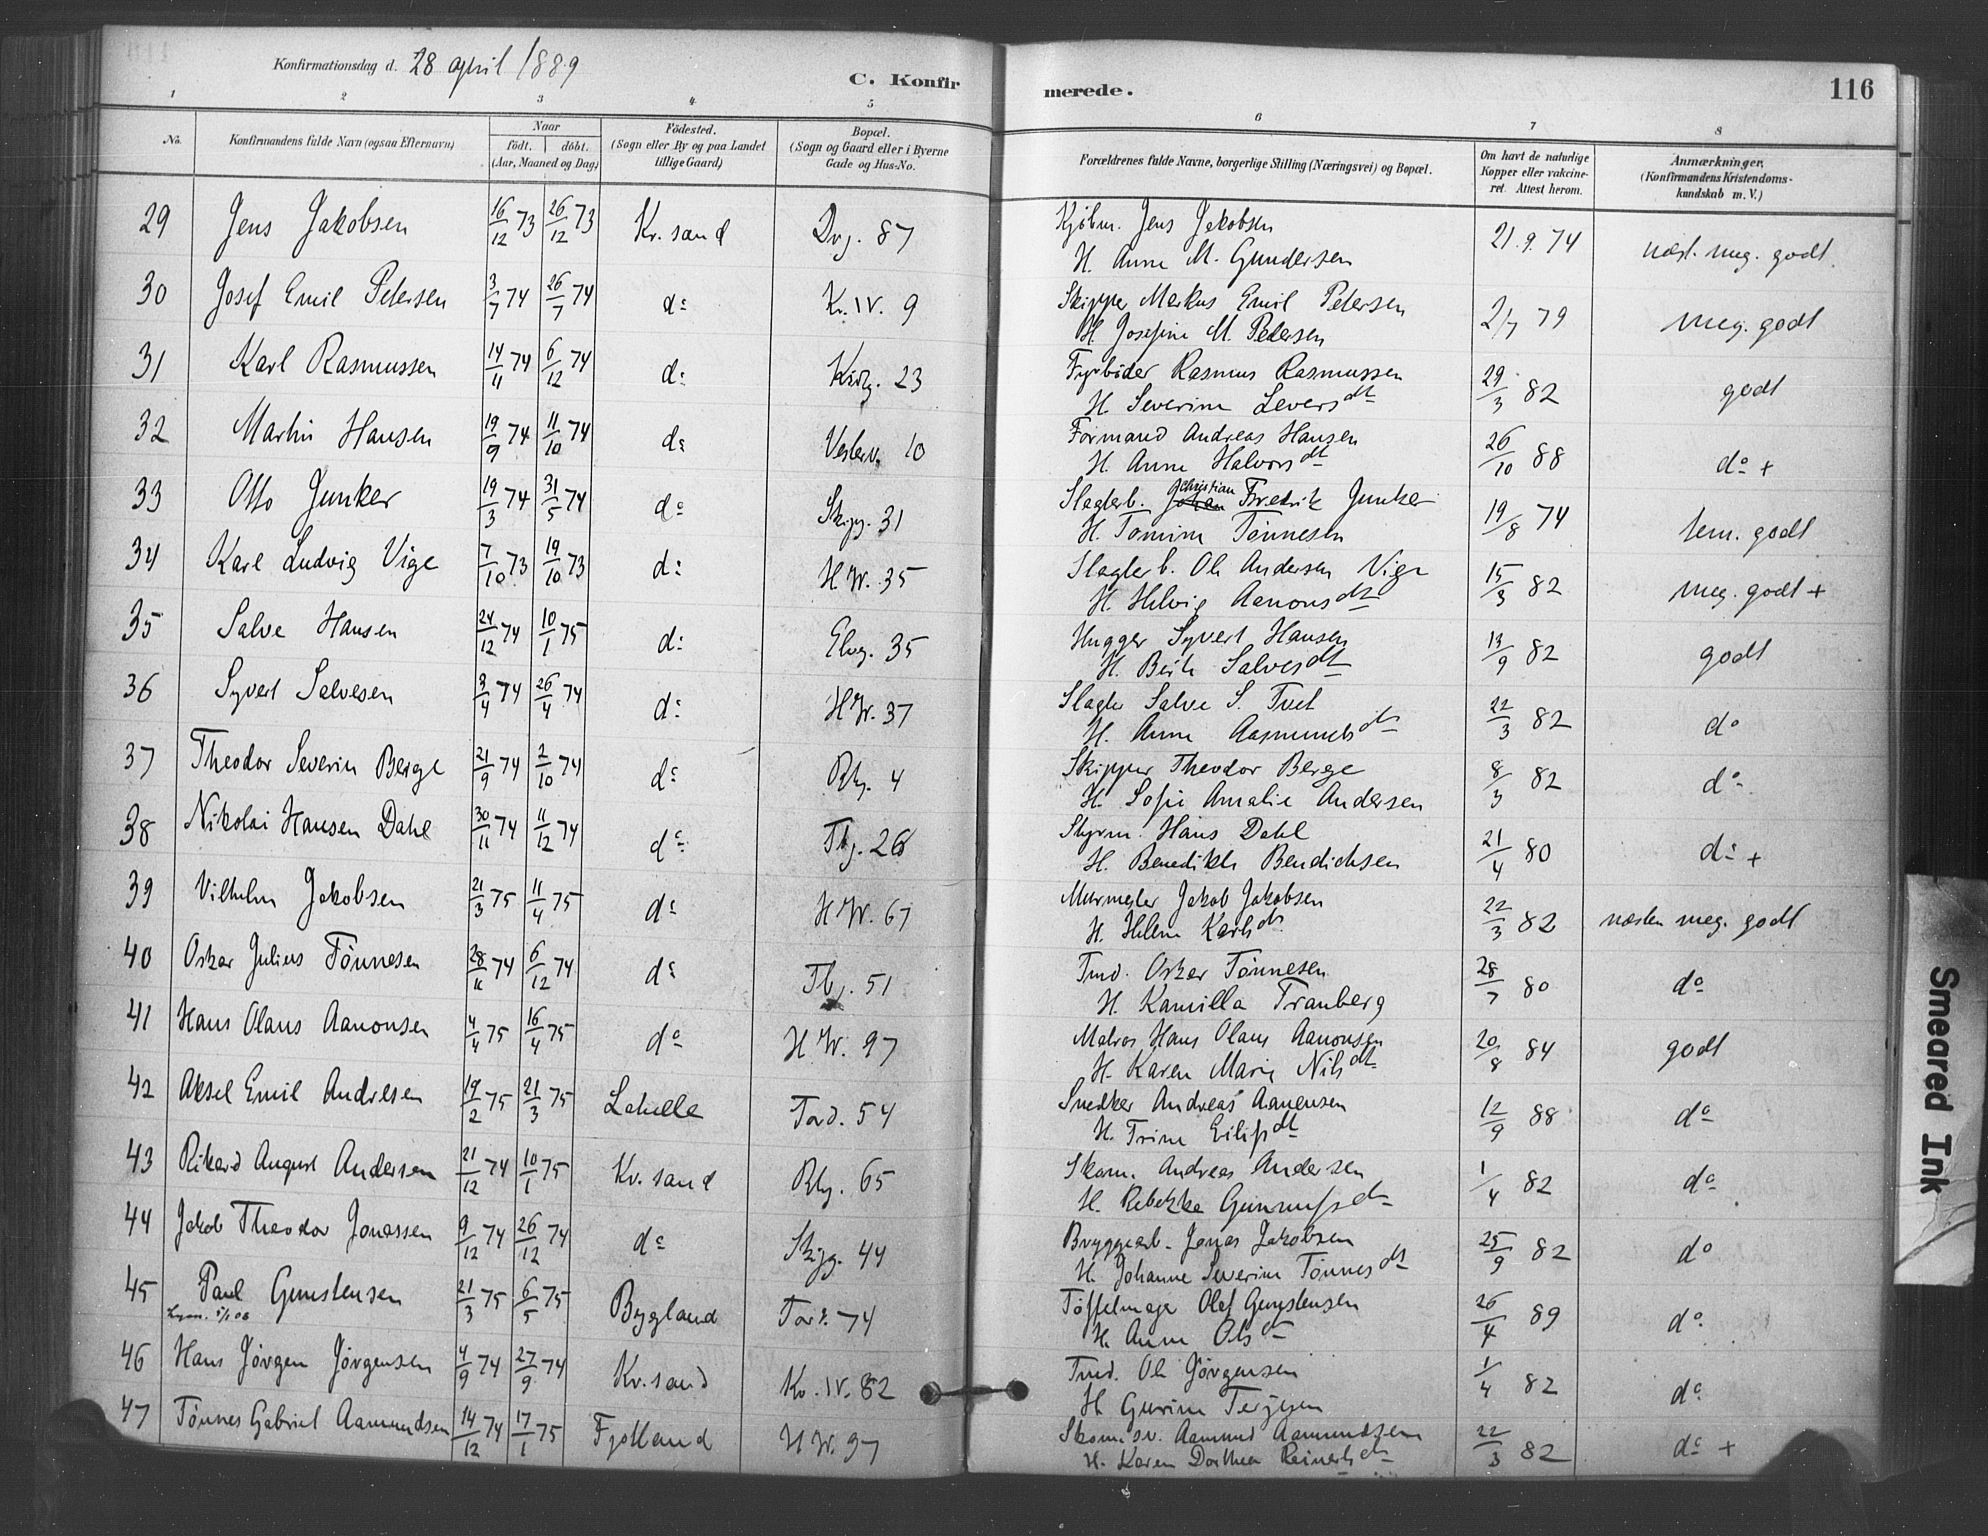 Konfirmationsdag d. 28 april 1889
C. Konfirmerede.
116
1 2 3 4 5 6 7 8
No. Konfirmandens fulde Navn (ogsaa Efternavn) Naar födt. döbt. (Aar, Maaned og Dag) Födested. (Sogn eller By og paa Landet tillige Gaard) Bopæl. (Sogn og Gaard eller i Byerne Gade og Hus-No. Forældrenes fulde Navne, borgerlige Stilling (Næringsvei) og Bopæl. Om havt de naturlige Kopper eller vakcineret. Attest herom. Anmærkninger. (Konfirmandens Kristendomskundskab m. V.)
29 Jens Jakobsen 16/12 73 26/12 73 Kr.sand Drg. 87 Kjöbm. Jens Jakobsen 21.9.74 næst. meg. godt
H. Anne M. Gundersen
30 Josef Emil Petersen 3/7 74 26/7 74 do Kr.IV. 9 Skipper Markus Emil Petersen 2/7 79 meg. godt
H. Josefine M. Petersen
31 Karl Rasmussen 14/11 74 6/12 74 do 23 Fyrböder Rasmus Rasmussen 29/3 82 godt
H. Severine Leversdt
32 Martin Hansen 19/9 74 11/10 74 do Vesterv. 10 Formand Andreas Hansen 26/10 88 do +
H. Anne Halvorsdt
33 Otto Junker 19/3 74 31/5 74 do Skipg. 31 Slagterb. Christian Fredrik Junker 19/8 74 tem. godt
H. Tomine Tönnesen
34 Karl Ludvig Vige 7/10 73 19/10 73 do H.W. 35 Slagterb. Ole Andersen Vige 15/3 82 meg. godt +
H. Helvig Aanonsdt
35 Salve Hansen 24/12 74 10/1 75 do Elvg. 35 Hugger Syvert Hansen 13/9 82 godt
H. Berte Salvesdt
36 Syvert Salvesen 3/4 74 26/4 74 do H.W. 37 Slagter Salve S. Tveit 22/3 82 do
H. Anne Aasmundsdt
37 Theodor Severin Berge 21/9 74 2/10 74 do Rhg. 4 Skipper Theodor Berge 8/3 82 do
H. Sofie Amalie Andersen
38 Nikolai Hansen Dahl 30/11 74 11/12 74 do Tbg. 26 Styrm. Hans Dahl 21/4 80 do +
H. Benedikte Bendichsen
39 Vilhelm Jakobsen 21/3 75 11/4 75 do H.W. 67 Murmester Jakob Jakobsen 22/3 82 næsten meg. godt
H. Helene Karlsdt
40 Oskar Julius Tönnesen 28/11 74 6/12 74 do Tbg. 51 Tmd. Oskar Tönnesen 28/7 80 do
H. Kamilla Tranberg
41 Hans Olaus Aanonsen 4/4 75 16/4 75 do H.W. 97 Matros Hans Olaus Aanonsen 20/8 84 godt
H. Karen Marie Nilsdt
42 Aksel Emil Andresen 19/2 75 21/3 75 Lahelle Tord. 54 Snedker Andreas Aanensen 12/9 88 do
H. Trine Eilifsdt
43 Rikard August Andersen 21/12 74 10/1 75 Kr.sand Rhg. 65 Skom. Andreas Andersen 1/4 82 do
H. Rebekka Gunnufsdt
44 Jakob Theodor Jonassen 9/12 74 26/12 74 do Skipg. 44 Bryggearb. Jonas Jakobsen 25/9 82 do
H. Johanne Severine Tönnesdt
45 Paul Gunstensen 21/3 75 6/5 75 Bygland Tord. 74 Töffelmager Olaf Gunstensen 26/4 89 do
H. Anne Olsdt
46 Hans Jörgen Jörgensen 4/9 74 27/9 74 Kr.sand Kr.IV. 82 Tmd. Ole Jörgensen 1/4 82 do
H. Gurine Terjesen
47 Tönnes Gabriel Aamundsen 14/12 74 17/1 75 Fjotland H.W. 97 Skom.sv. Aamund Aamundsen 22/3 82 do +
H. Karen Dorthea Reinertsdt
Smeared Ink